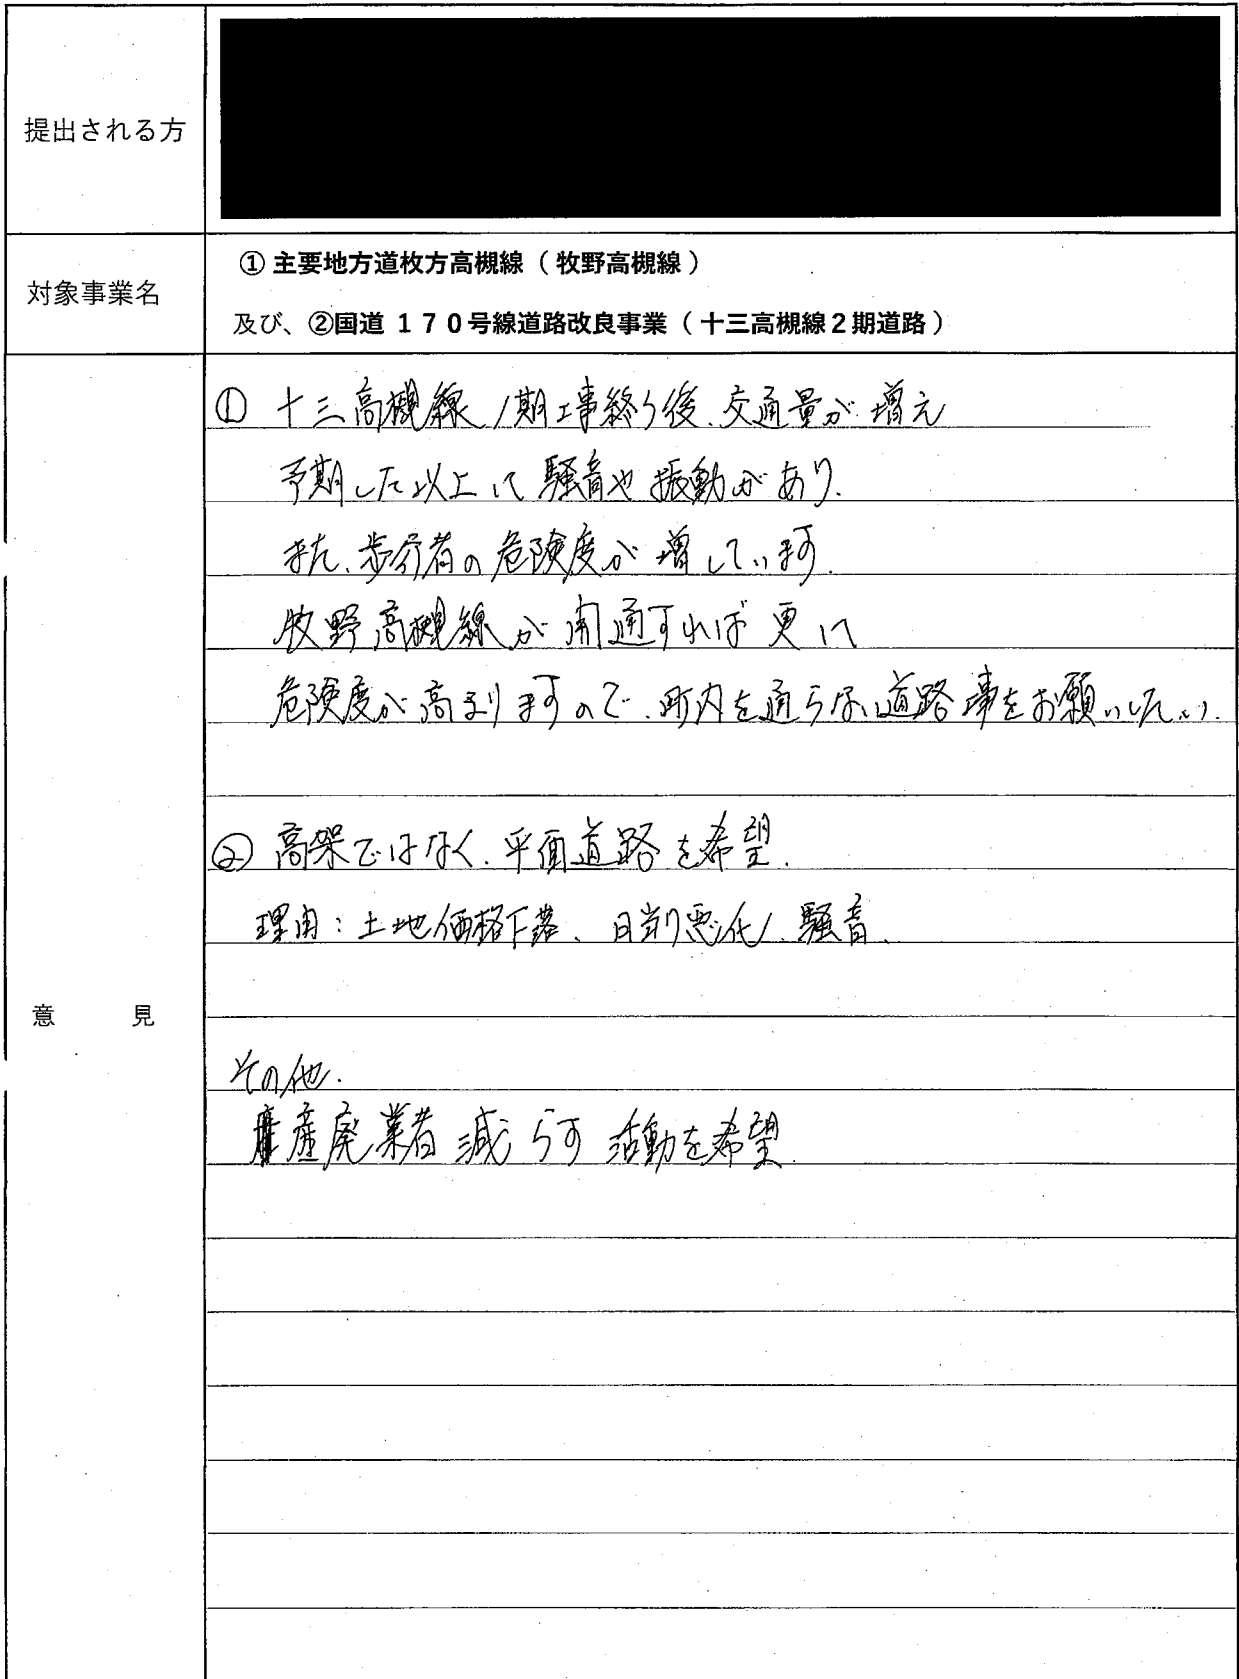 提出される方
対象事業名
① 主要地方道枚方高槻線（牧野高槻線）
及び、②国道 １７０号線道路改良事業（十三高槻線２期道路）
意 見
① 十三高槻線１期工事終り後、交通量が増え
予期した以上に騒音や振動があり、
また、歩行者の危険度が増しています。
牧野高槻線が開通すれば更に
危険度が高まりますので、町内を通らない道路事をお願いしたい。
② 高架ではなく、平面道路を希望。
理由：土地価格下落、日当り悪化、騒音、
その他、
産廃業者減らす活動を希望